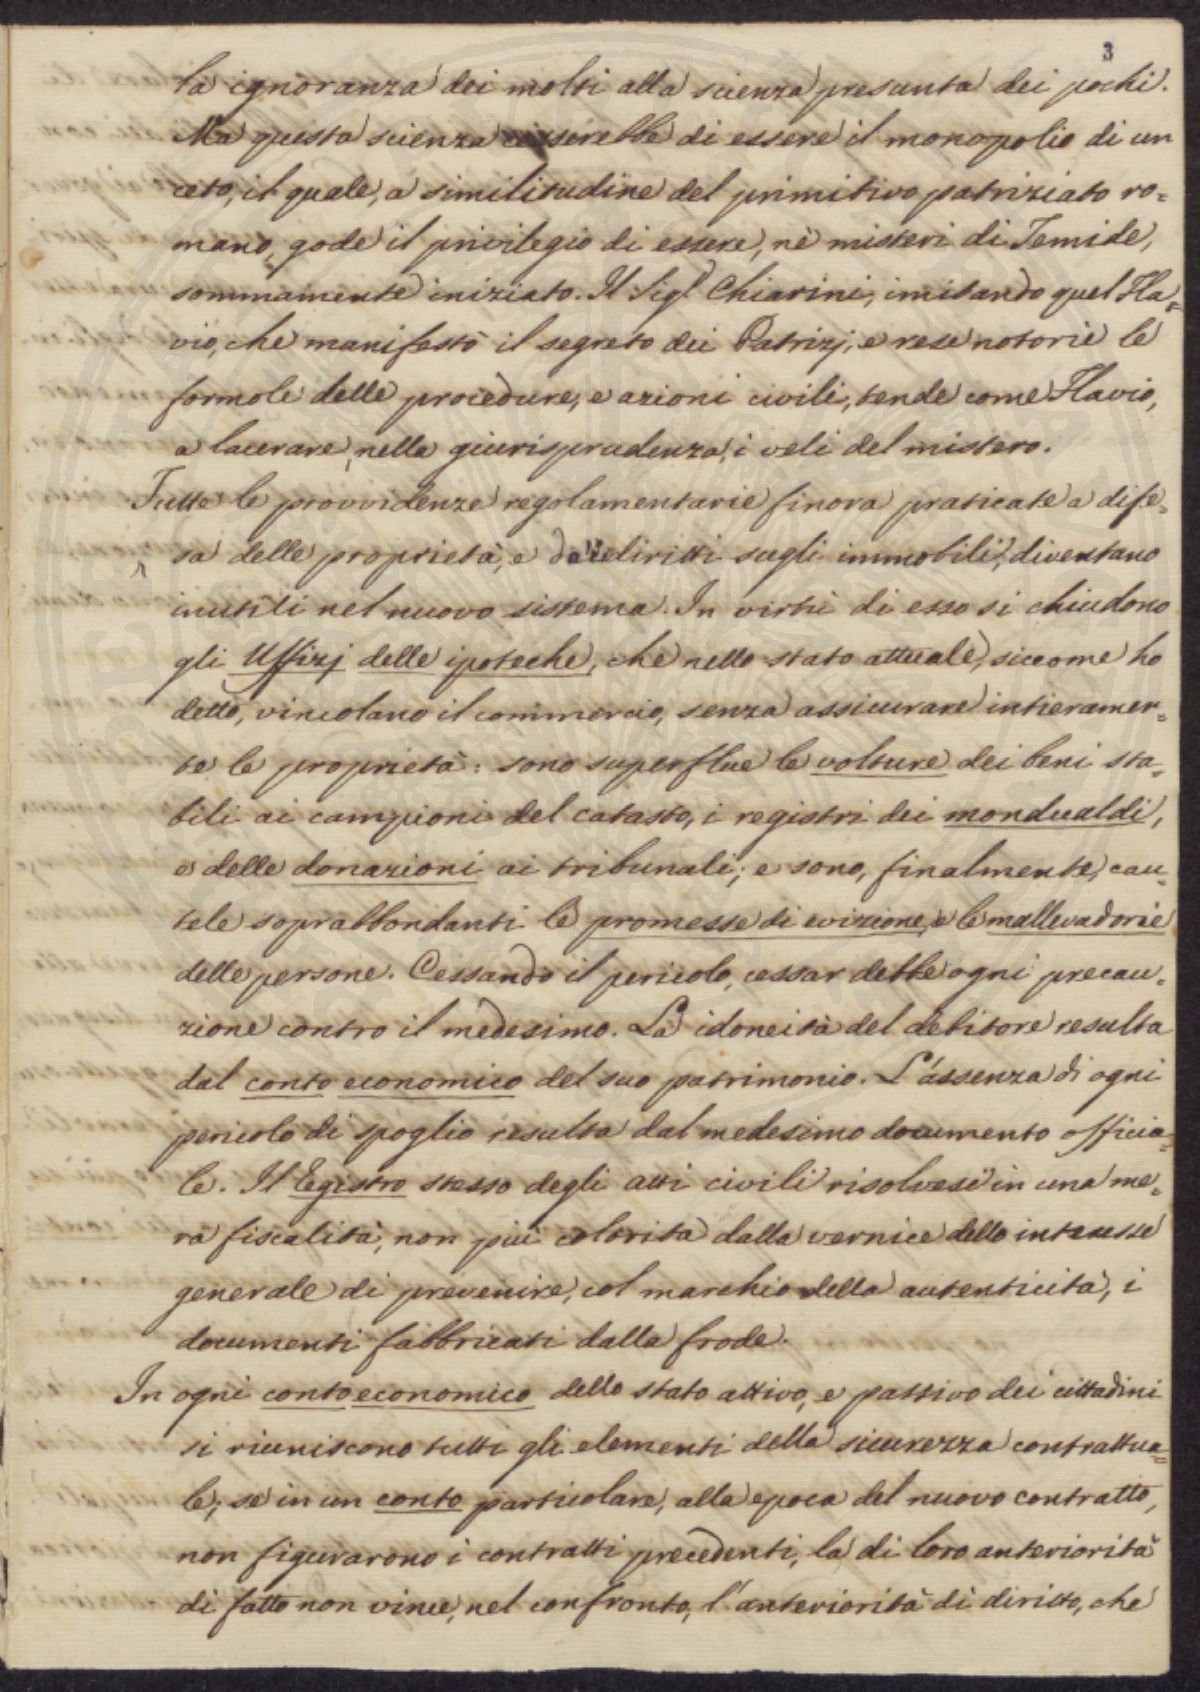 3
la ignoranza dei molti alla scienza presunta dei pochi.
Ma questa scienza cesserebbe di essere il monopolio di un
ceto, il quale, a similitudine del primitivo patriziato ro=
mano, gode il privilegio di essere, nè misteri di Temide,
sommamente iniziato. Il Sigr. Chiarini, imitando quel Fla=
vio, che manifestò il segreto dei Patrizj, e rese notorie le
formole delle procedure, e azioni civili, tende come Flavio,
a lacerare, nella giurisprudenza, i veli del mistero.
Tutte le provvidenze regolamentarie finora praticate a dife=
sa delle proprietà, e dei diritti sugli immobili, diventano
inutili nel nuovo sistema. In virtù di esso si chiudono
gli Uffizj delle ipoteche, che nello stato attuale, siccome ho
detto, vincolano il commercio, senza assicurare intieramen=
te le proprietà: sono superflue le volture dei beni sta=
bili ai campioni del catasto, i registri dei mondualdi,
e delle donazioni ai tribunali; e sono, finalmente, cau=
tele soprabbondanti le promesse di evizione, e le mallevadorie
delle persone. Cessando il pericolo, cessar debbe ogni precau=
zione contro il medesimo. La idoneità del debitore resulta
dal conto economico del suo patrimonio. L'assenza di ogni
pericolo di spoglio resulta dal medesimo documento officia=
le. Il Registro stesso degli atti civili risolvesi in una me=
ra fiscalità, non più colorita dalla vernice dello interesse
generale di prevenire, col marchio della autenticità, i
documenti fabbricati dalla frode.
In ogni conto economico dello stato attivo, e passivo dei cittadini
si riuniscono tutti gli elementi della sicurezza contrattua=
le; se in un conto particolare, alla epoca del nuovo contratto,
non figurarono i contratti precedenti, la di loro anteriorità
di fatto non vince, nel confronto, l'anteriorità di diritto, che